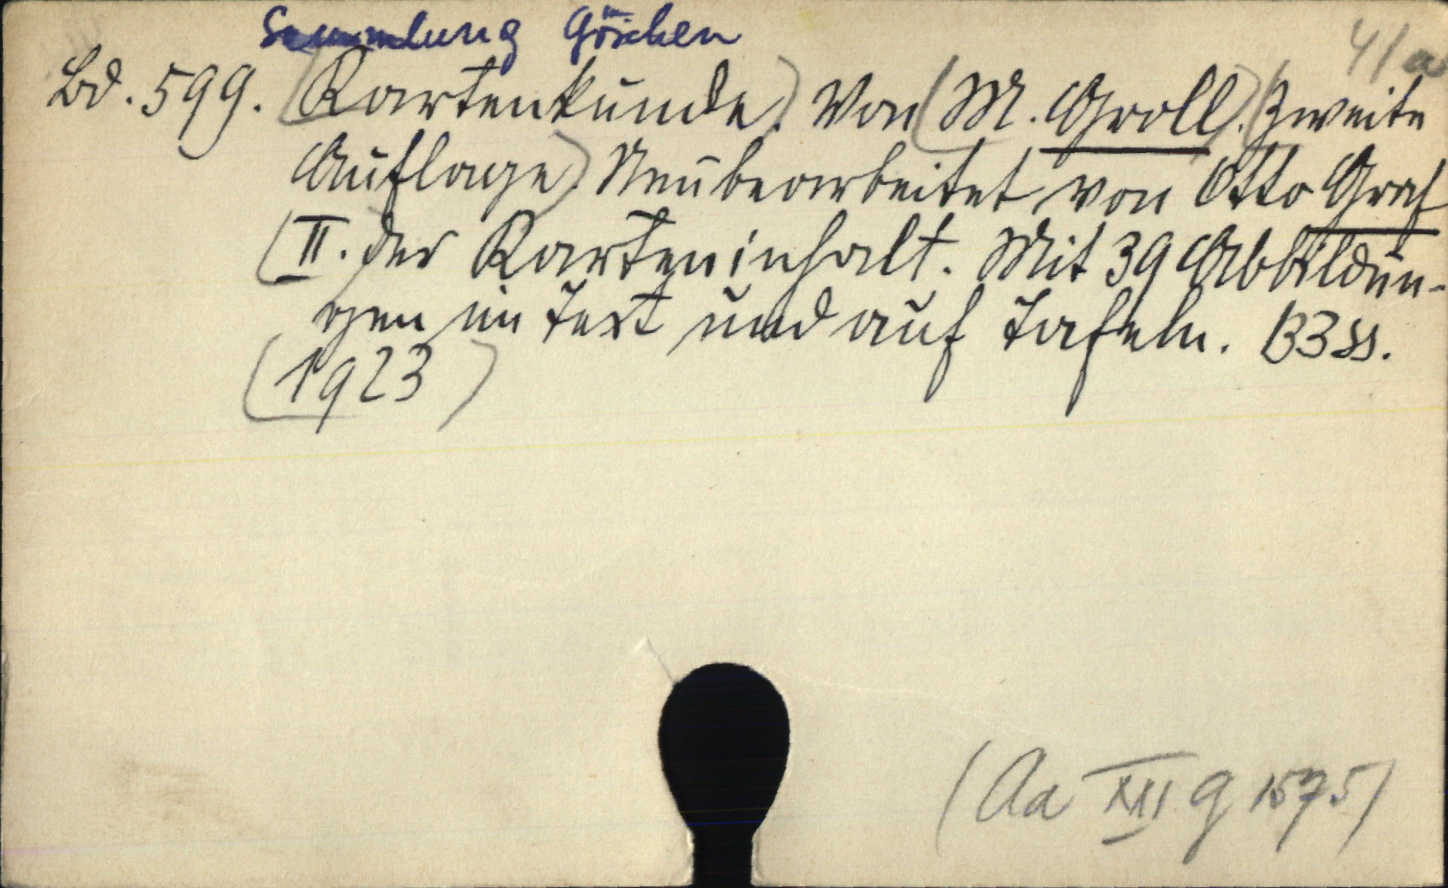 Sammlung Göschen
41a
Bd. 599. (Kartenkunde.) Von (M. Groll.) (Zweite
Auflage.) Neubearbeitet von Otto Graf
(II. Der Karteninhalt. Mit 39 Abbildun-
gen im Text und auf Tafeln. 133 SS.
(1923)
(Aa XXII g 1575)